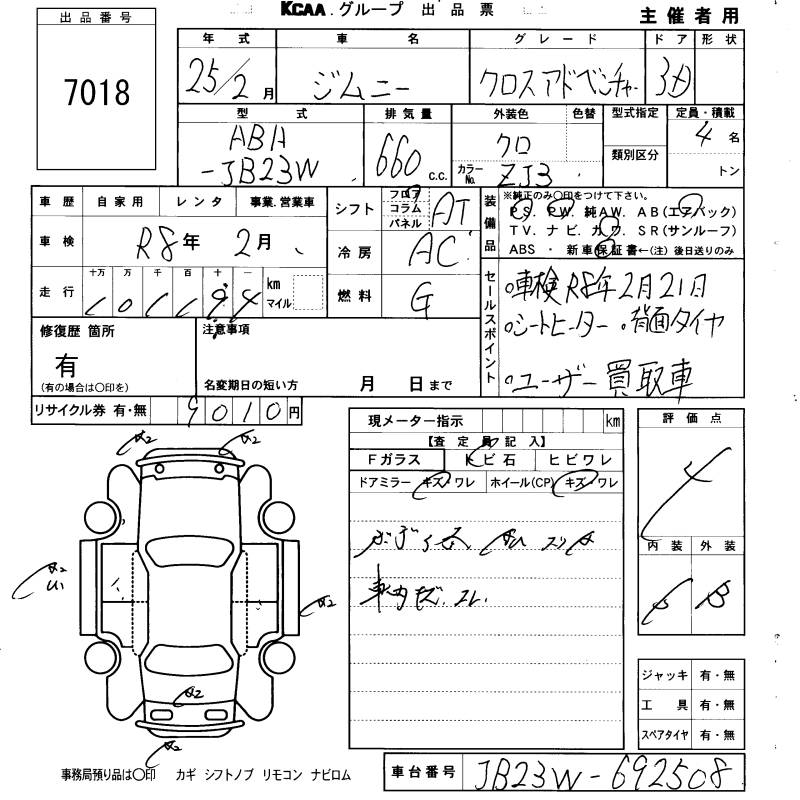 KCAA.グループ 出品票
主催者用
出品番号
7018
年式 車名 グレード ドア 形状
25/2月 ジムニー クロスアドベンチャー 3D
型式 排気量 外装色 色替 型式指定 定員・積載
ABA-JB23W 660 c.c. クロ 類別区分 4名
カラーNo. ZJ3 トン
車歴 自家用 レンタ 事業.営業車
シフト フロア コラム パネル AT
装備品 ※純正のみ〇印をつけて下さい。
PS. PW. 純AW. AB(エアバック)
TV. ナビ. カワ. SR(サンルーフ)
ABS ・ 新車保証書←(注) 後日送りのみ
車検 R8年 2月
冷房 AC
走行 十万 万 千 百 十 一 km マイル
燃料 G
セールスポイント
車検R8年2月21日
シートヒーター 背面タイヤ
ユーザー買取車
修復歴 箇所 注意事項
有
(有の場合は〇印を) 名変期日の短い方 月 日まで
リサイクル券 有・無 9010円
現メーター指示 km
【査定員記入】
Fガラス トビ石 ヒビワレ
ドアミラー キズ・ワレ ホイール(CP) キズ・ワレ
評価点
4
内装 外装
B
A2
A2
A2
A2
A2
A2
ジャッキ 有・無
工具 有・無
スペアタイヤ 有・無
事務局預り品は〇印 カギ シフトノブ リモコン ナビロム
車台番号 JB23W-692508